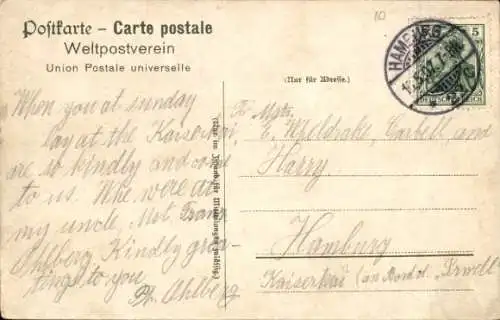 Postkarte – Carte postale
Weltpostverein
Union Postale universelle
(Nur für Adresse.)
HAMBURG
5
When you at sunday
lay at the Kaiserkai,
are so kindly and come
to us. Who were at
my uncle, Mst. Franz
Ohlberg. Kindly gree-
tings to you
Ohlberg
E. Wheldrake, Corbell and
Harry.
Hamburg
Kaiserkai (an Bord d. "Irwell"